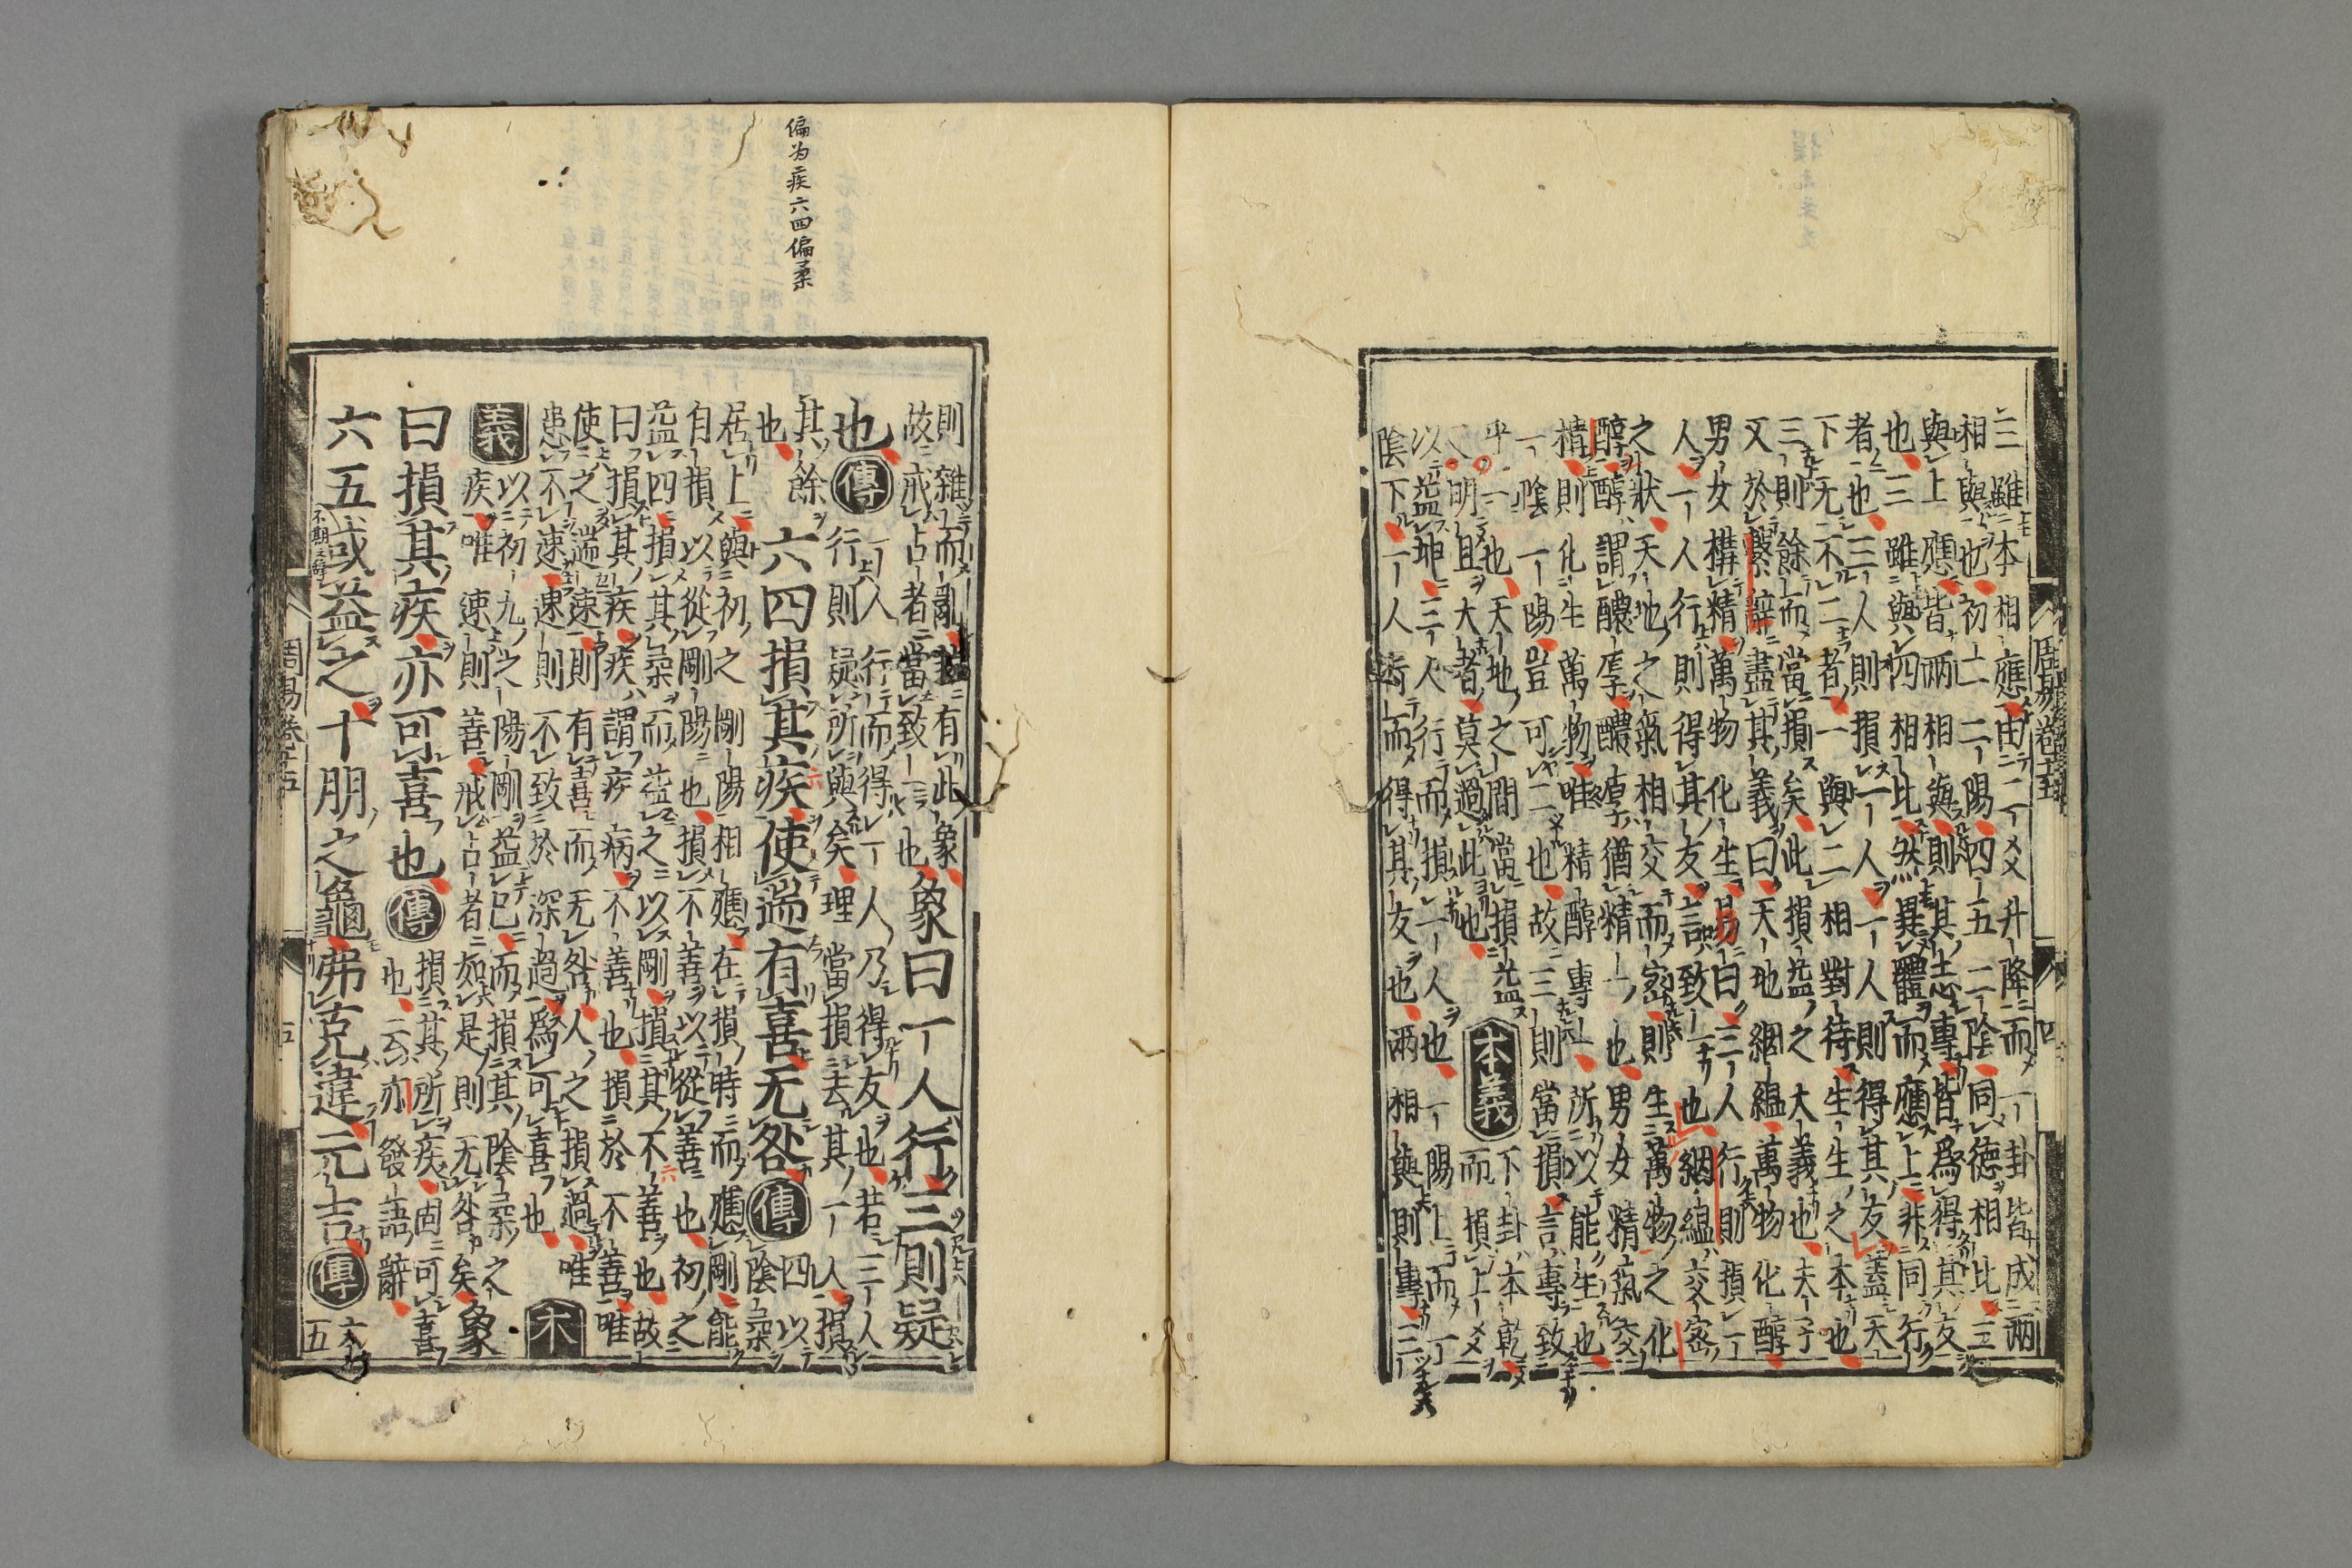 三雖本相應由二爻升降而一卦皆成兩
相與也初二二陽四五二陰同德相比三
與上應皆兩相與則其志專皆爲得其友
也三雖與四相比然異體而應上非同行
者也三人則損一人一人則得其友蓋天
下无不二者一與二相對待生生之本也
三則餘而當損矣此損益之大義也夫子
又於繫辭盡其義曰天地絪縕萬物化醇
男女構精萬物化生易曰三人行則損一
人一人行則得其友言致一也絪縕交密
之狀天地之氣相交而密則生萬物之化
醇醇謂醲厚醲厚猶精一也男女精氣交
構則化生萬物唯精醇專一所以能生也
一陰一陽豈可二也故三則當損言專致
乎一也天地之間當損益
之明且大者莫過此也
本義
下卦本乾
而損上爻
以益坤三人行而損一人也一陽上而一
陰下一人行而得其友也兩相與則專三
周易卷十五
偏为疾六四偏柔
則雜而亂卦有此象
故戒占者當致一也
象曰一人行三則疑
也
傳
一人行而得一人乃得友也若三人
行則疑所與矣理當損去其一人損
其餘
也
六四損其疾使遄有喜无咎
傳
四以
陰柔
居上與初之剛陽相應在損時而應剛能
自損以從剛陽也損不善以從善也初之
益四損其柔而益之以剛損其不善也故
曰損其疾疾謂疾病不善也損於不善唯
使之遄速則有喜而无咎人之損過唯
患不速速則不致於深過爲可喜也
本
義
以初九之陽剛益已而損其陰柔之
疾唯速則善戒占者如是則无咎矣
象
曰損其疾亦可喜也
傳
損其所疾固可喜
也云亦發語辭
六五或益之十朋之龜弗克違元吉
傳
六
五
周易卷十五